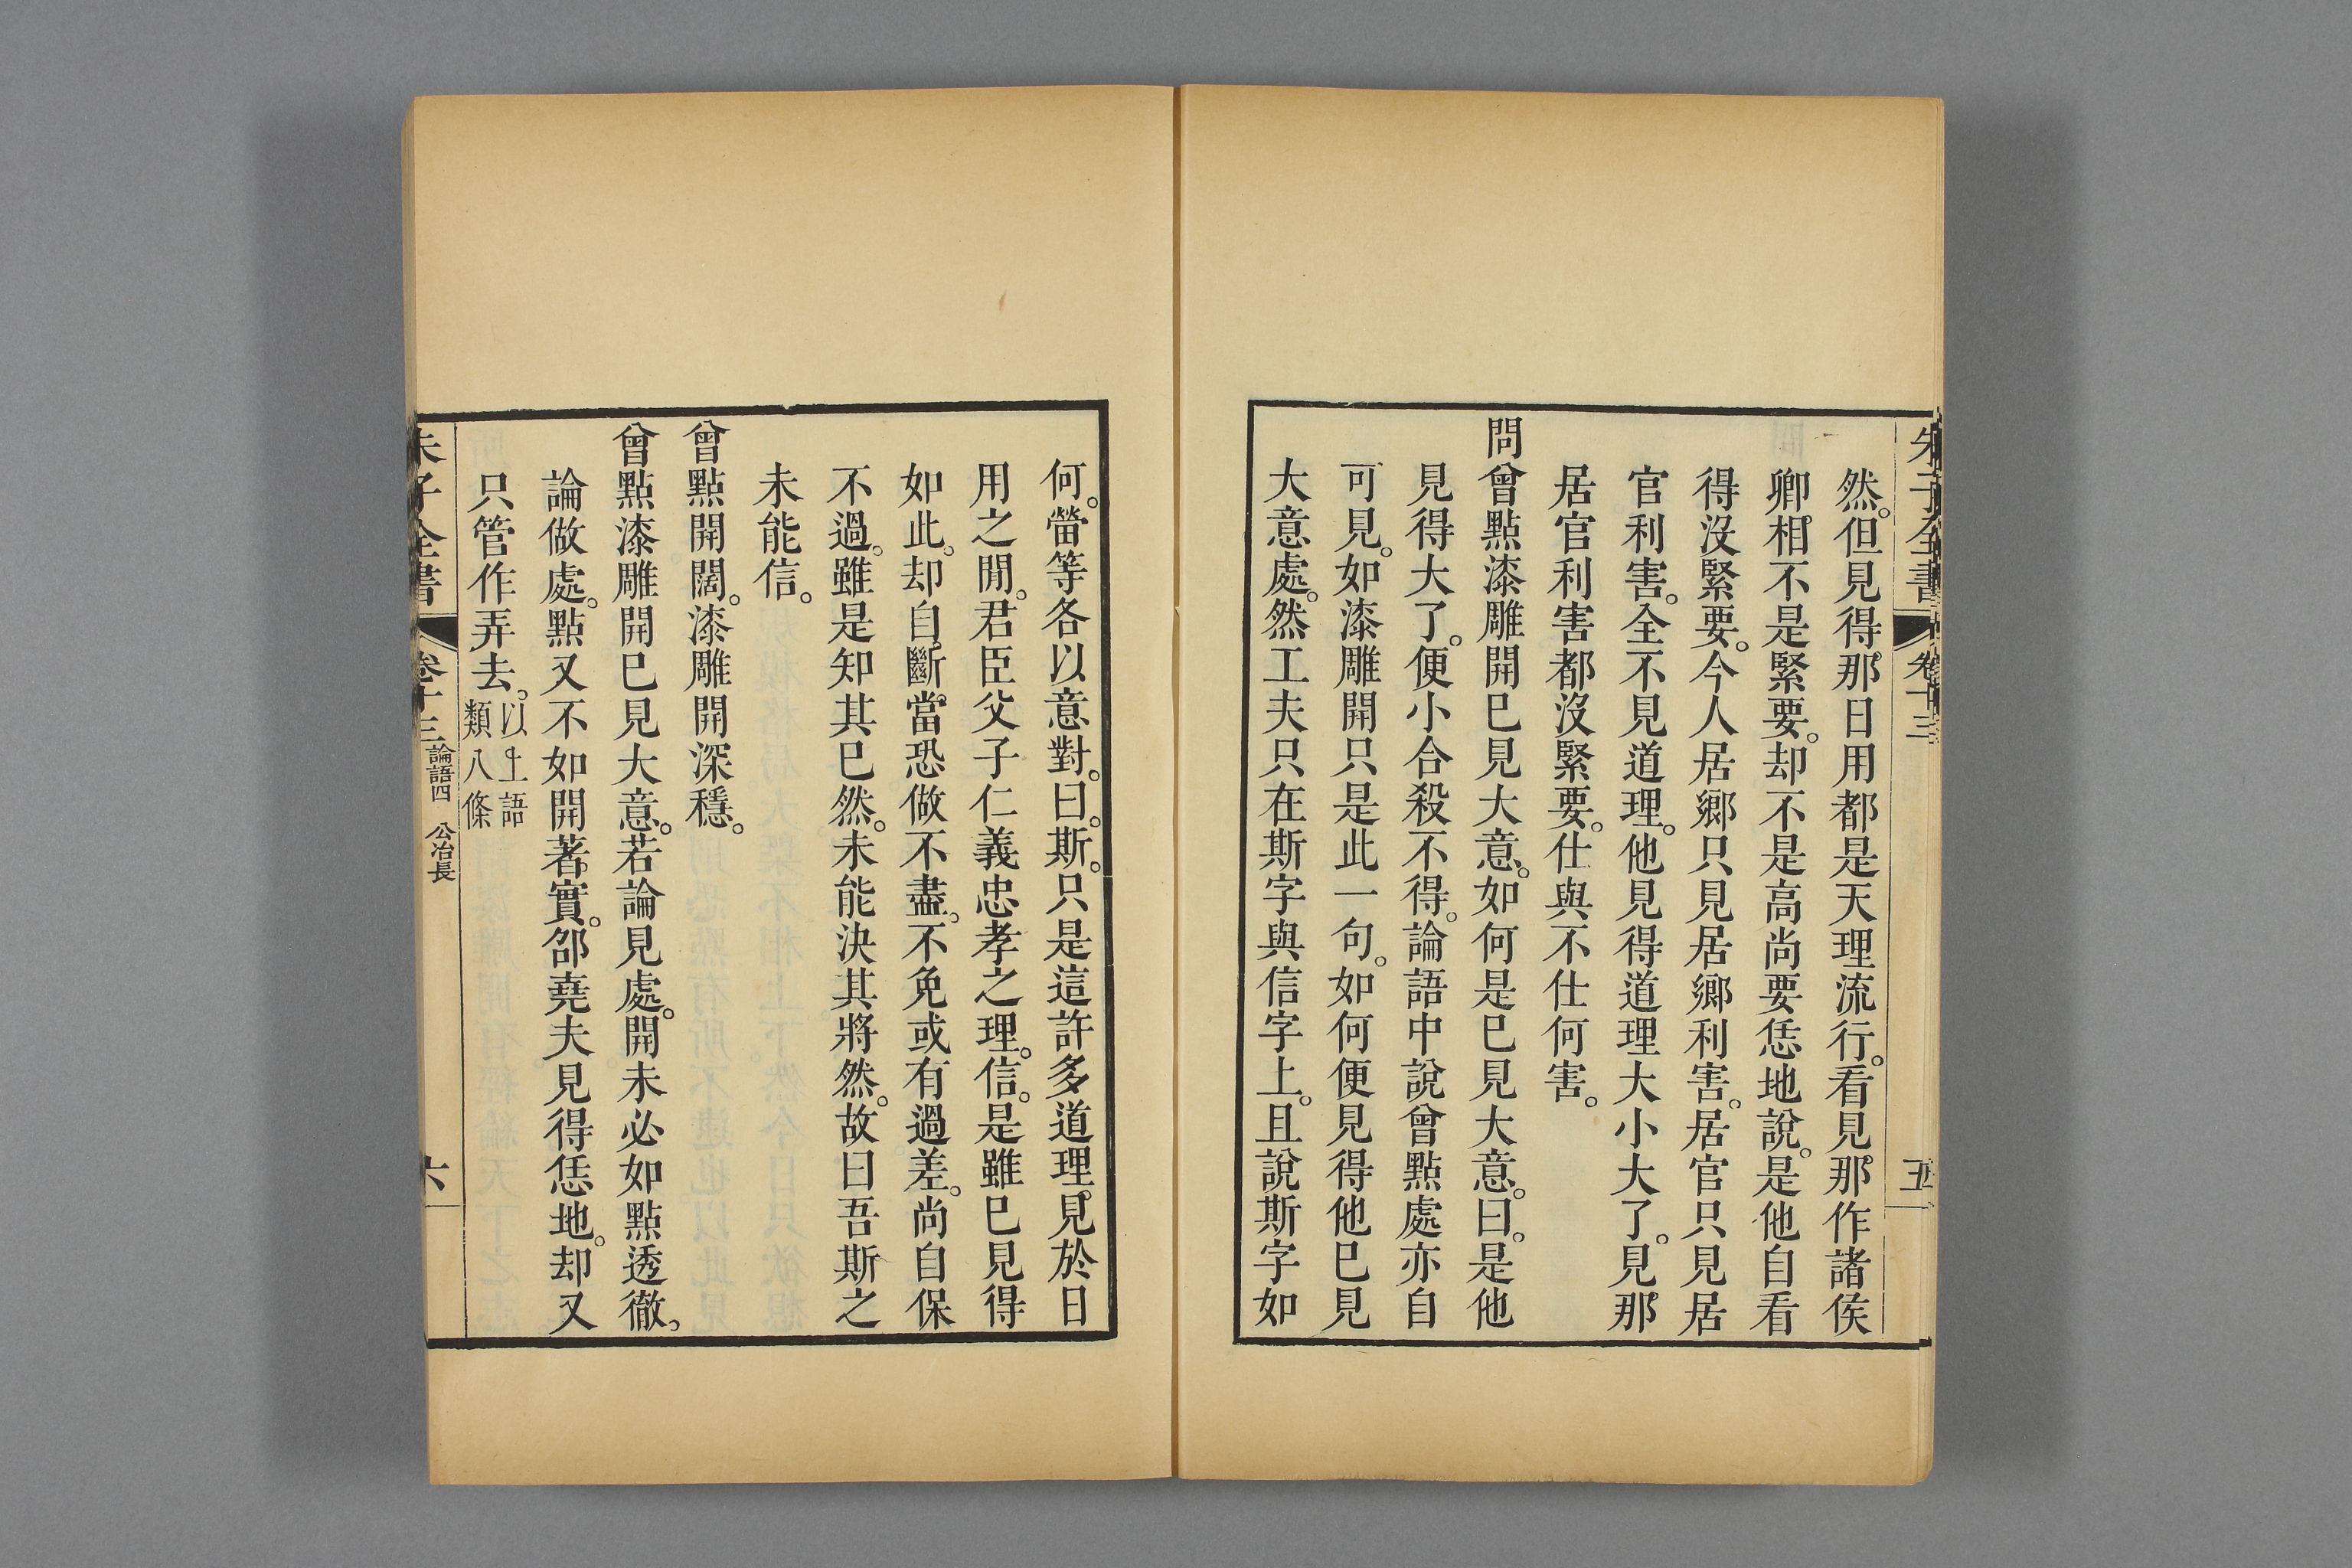 朱子全書 卷十三 五
然。但見得那日用都是天理流行。看見那作諸侯
卿相不是緊要。却不是高尚要恁地說。是他自看
得沒緊要。今人居鄉只見居鄉利害。居官只見居
官利害。全不見道理。他見得道理大小大了。見那
居官利害都沒緊要。仕與不仕何害。
問曾點漆雕開已見大意。如何是已見大意。曰。是他
見得大了。便小合殺不得。論語中說曾點處亦自
可見。如漆雕開只是此一句。如何便見得他已見
大意處。然工夫只在斯字與信字上。且說斯字如
何。螢等各以意對。曰。斯。只是這許多道理見於日
用之閒。君臣父子仁義忠孝之理。信。是雖已見得
如此。却自斷當恐做不盡。不免或有過差。尚自保
不過。雖是知其已然。未能決其將然。故曰吾斯之
未能信。
曾點開闊。漆雕開深穩。
曾點漆雕開已見大意。若論見處。開未必如點透徹。
論做處。點又不如開著實。邵堯夫見得恁地。却又
只管作弄去。以上語類八條
朱子全書 卷十三 論語四 公冶長 六